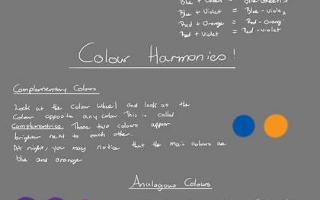 Blue + = Blue
Blue + Violet = Blue - Violet
Red + Orange = Red - Orange
Red + Violet = Red - violet
Colour Harmonies!
Complementary Colours
Look at the Colour Wheel and look at the
Colour opposite any Colour. This is called
Complementries. These two colours appear
brighter next to each other.
At night, you may notice that the main colours are
blue and orange
Analogous Colours